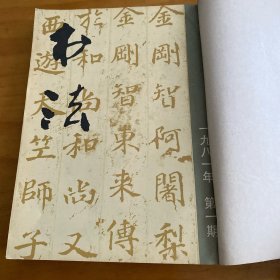 书法
一九八一年 第一期
金剛智阿闍梨
金剛智東来傳
於和尚和尚又
西遊天竺師子